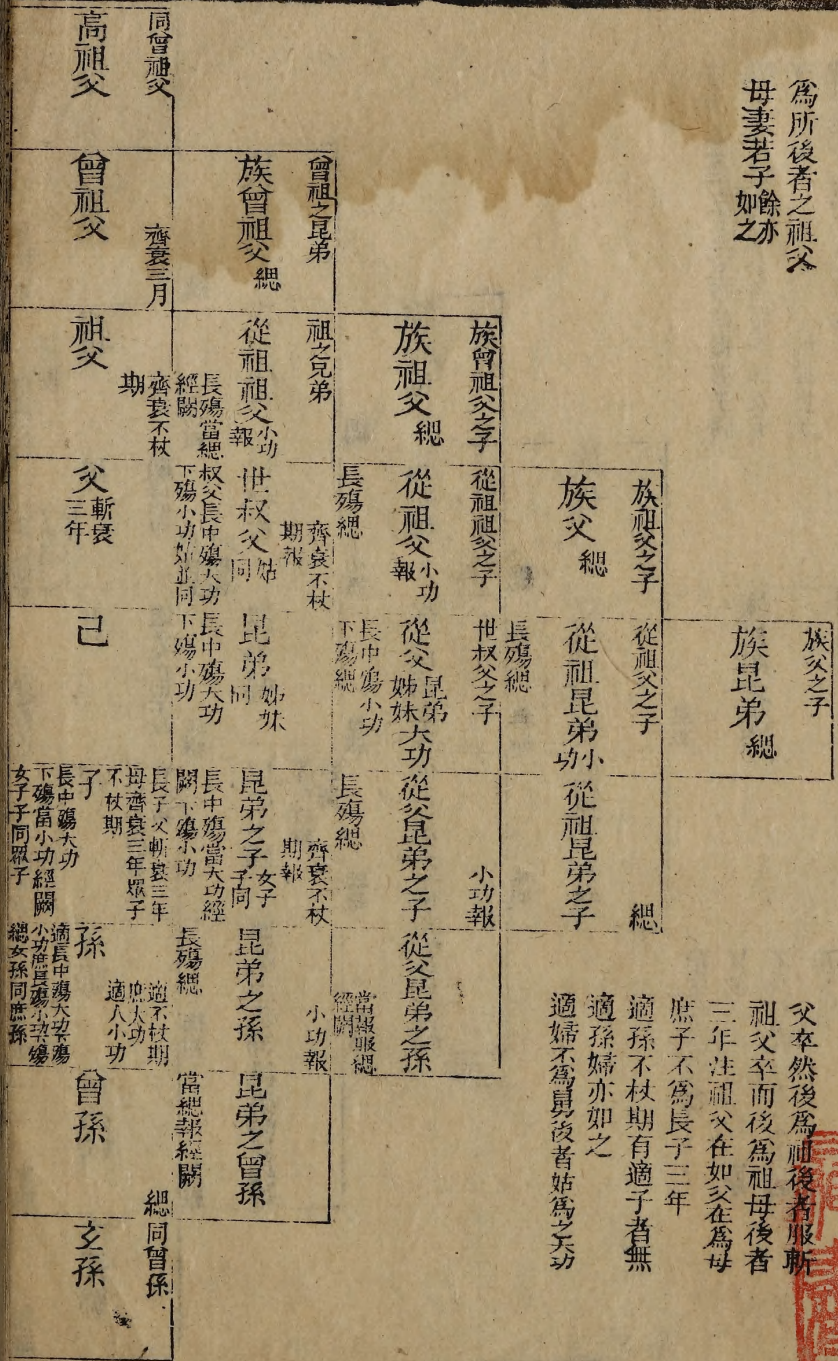 爲所後者之祖父
母妻若子
餘亦
如之
父卒然後爲祖後者服斬
祖父卒而後爲祖母後者
三年注祖父在如父在爲母
庶子不爲長子三年
適孫不杖期有適子者無
適孫婦亦如之
適婦不爲舅後者姑爲之大功
族父之子
族昆弟緦
族祖父之子
族父緦
從祖父之子
從祖昆弟小功
長殤緦
緦
從祖昆弟之子
族曾祖父之子
族祖父緦
從祖祖父之子
從祖父小功
報
長殤緦
世叔父之子
從父昆弟
姊妹大功
長中殤小功
下殤緦
小功報
從父昆弟之子
長殤緦
從父昆弟之孫
當報服緦
經闕
曾祖之昆弟
族曾祖父緦
祖之兄弟
從祖祖父小功
報
長殤當緦
經闕
齊衰不杖
期報
世叔父姑
同
叔父長中殤大功
下殤小功姑並同
昆弟姊妹
同
長中殤大功
下殤小功
齊衰不杖
期報
昆弟之子女子
子同
長中殤當大功經
闕下殤小功
小功報
昆弟之孫
長殤緦
昆弟之曾孫
當緦報經闕
同曾祖父
高祖父
齊衰三月
曾祖父
齊衰不杖
期
祖父
父斬衰
三年
己
長子父斬衰三年
母齊衰三年眾子
不杖期
子
長中殤大功
下殤當小功經闕
女子子同眾子
適不杖期
庶大功
適人小功
孫
適長中殤大功下殤
小功庶長殤小功下殤
緦女孫同庶孫
緦
曾孫
同曾孫
玄孫